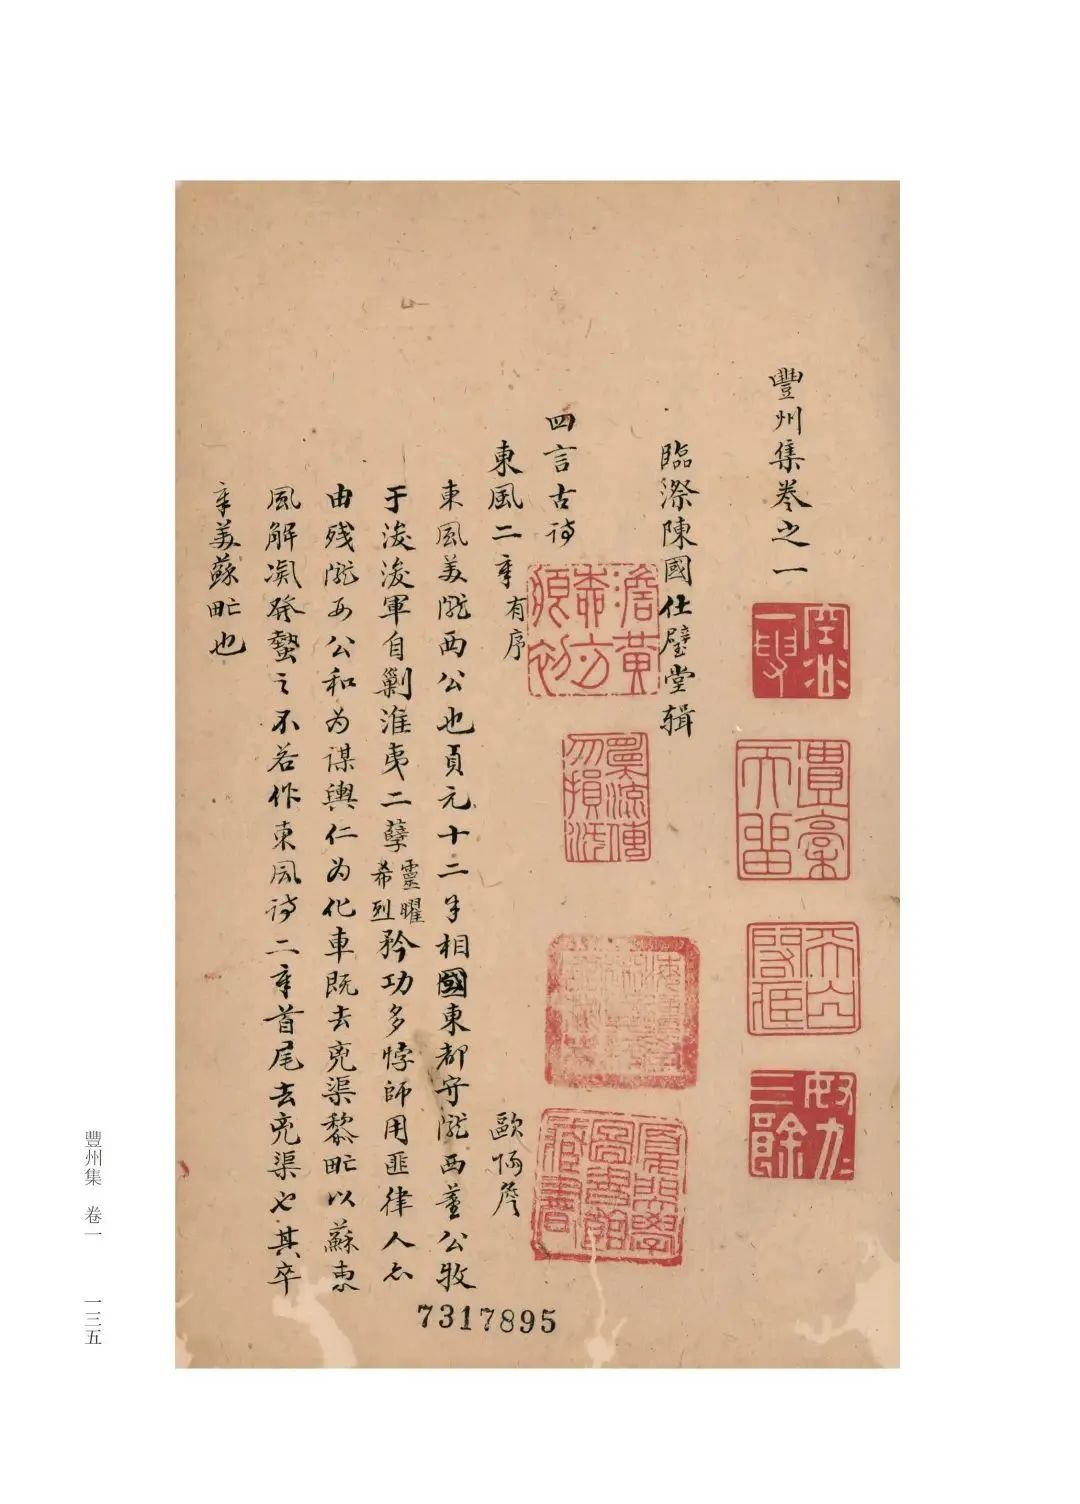 豐州集卷之一
臨漈陳國仕璧堂辑
四言古詩
東風二章有序
歐陽詹
東風美隴西公也貞元十二年相國東都守隴西董公牧
于浚浚軍自剿淮夷二孽靈曜希烈矜功多悖師用匪律人忘
由残隴西公和为谋輿仁为化車既去亮渠黎甿以蘇東
風解凍發蟄之不若作東風詩二章首尾去亮渠也其卒
章美蘇甿也
努力
三餘
7317895
豐州集 卷一 一三五